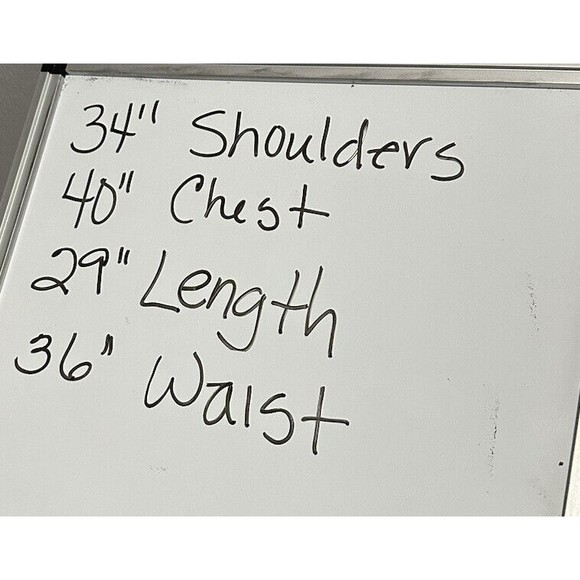 34" Shoulders
40" Chest
29" Length
36" Waist